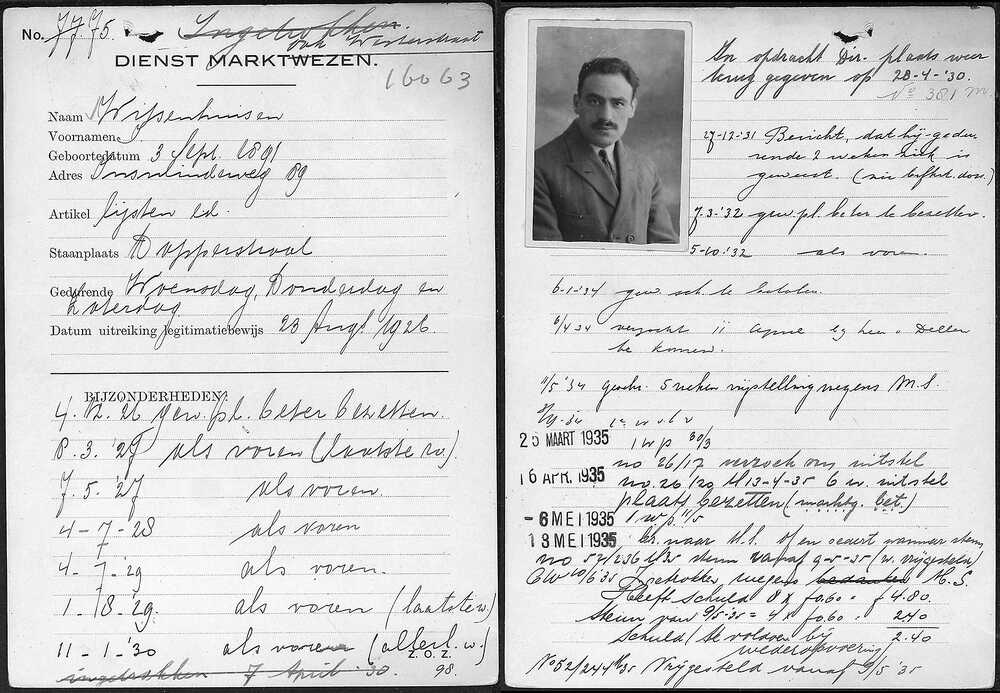 No. 77.75. Ingetrokken.
ook Westerstraat
DIENST MARKTWEZEN.
16063
Naam Wijsenhuisen
Voornamen
Geboortedatum 3 Sept. 1891
Adres Insulindeweg 89
Artikel lijsten ed.
Staanplaats Dapperstraat
Gedurende Woensdag, Donderdag en
Zaterdag
Datum uitreiking legitimatiebewijs 23 Aug. 1926.
BIJZONDERHEDEN:
4. 12. 26 gew. pl. beter bezetten.
8. 3. '27 als voren (laatste w.)
7. 5. '27 als voren.
4-7-28 als voren
4-7-29 als voren.
1-8-'29. als voren (laatste w.)
11-1-'30 als voren (allerl. w.)
Z.O.Z.
ingetrokken 7 April '30. 98.
In opdracht Dir. plaats weer
terug gegeven op 28-4-'30.
No 381 M.
27-12-31 Bericht, dat hij gedu-
rende 2 weken ziek is
geweest. (zie doss.)
7-3-'32 gew. pl. beter te bezetten.
5-10-'32 als voren.
6-1-'34 gew. sch. te betalen.
6/4 34 verzocht 11 April bij heer Deller
te komen.
11/5 '34 geschr. 5 weken vrijstelling wegens M.S.
25 MAART 1935 1 w p 30/3
no 26/17 verzoek om uitstel
16 APR. 1935 no. 26/20 13-4-35 6 w. uitstel
plaats bezetten (marktg. bet.)
-6 MEI 1935 1 w p. 11/5
13 MEI 1935 br. naar M.S. of en wanneer steun
no 52/236 steun vanaf 9-5-35 (w. vrijgesteld)
10/6 35 wegens M.S.
Heeft schuld 8 x f0.60 = f 4.80.
steun van 9/5-35 = 4 x f0.60 = 2.40
schuld te voldoen bij 2.40
wederopvoering
No 52/244 35 Vrijgesteld vanaf 9/5 '35